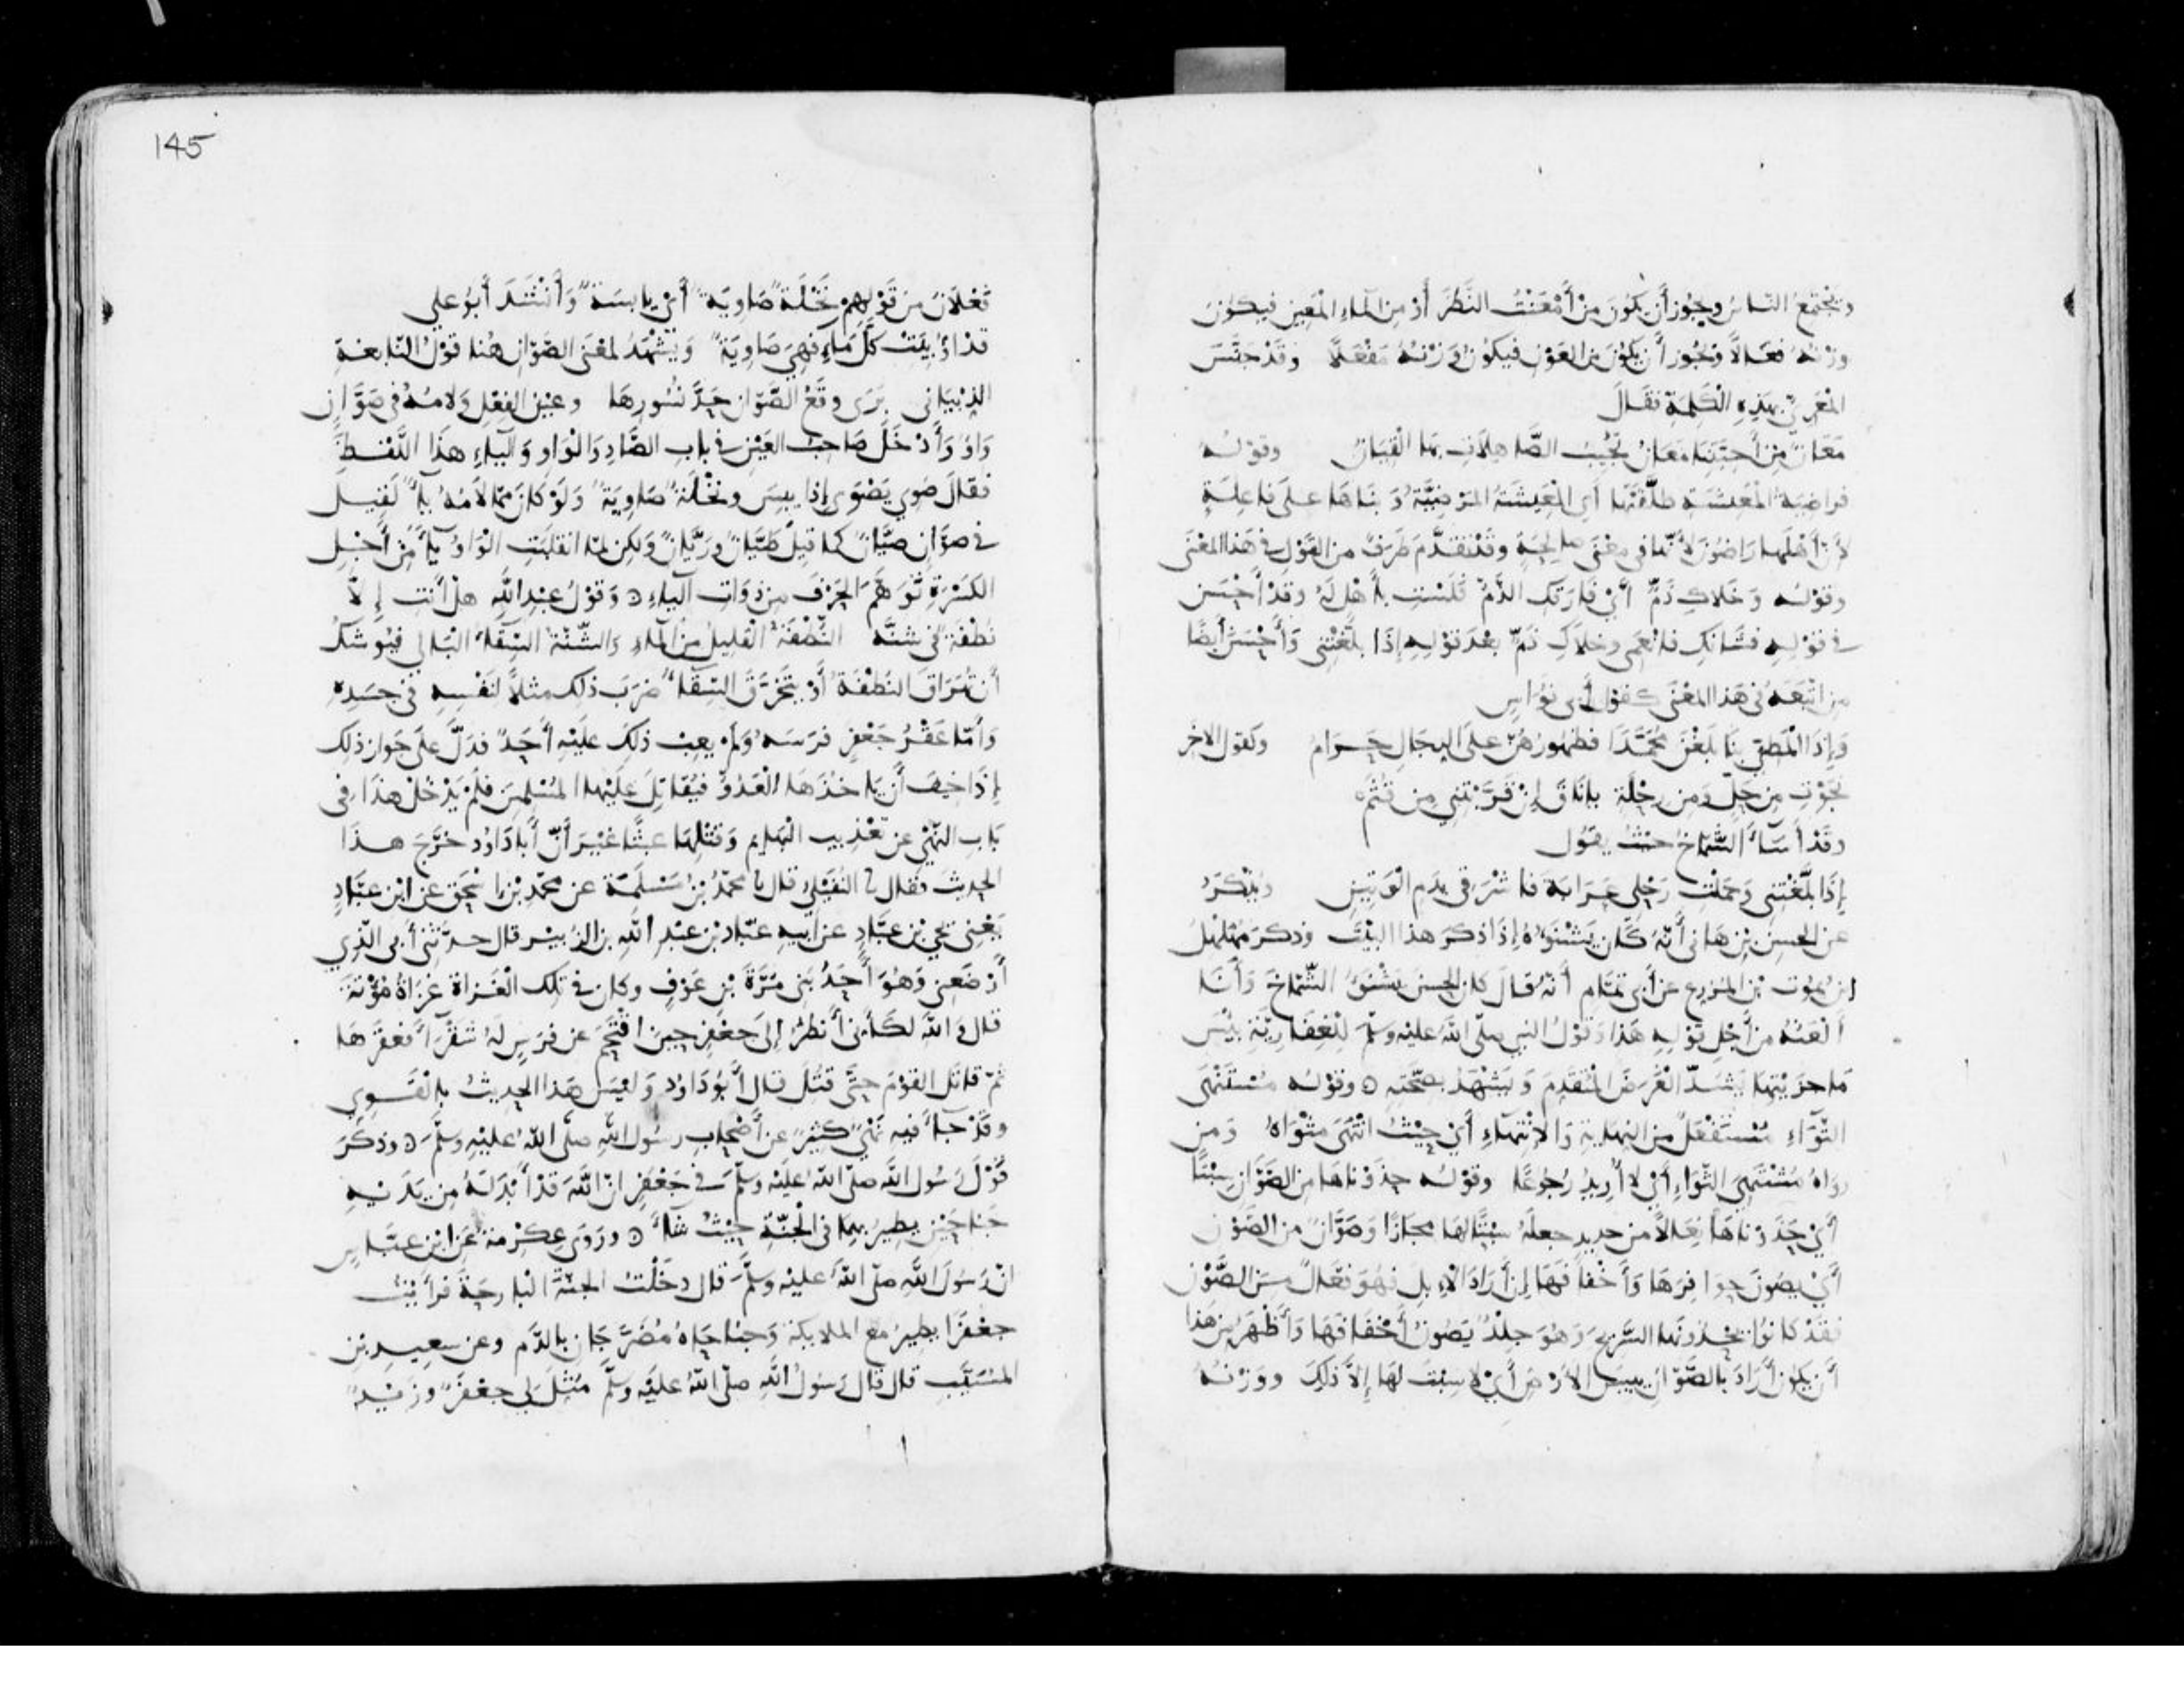 وتجتمع الناسُ ويجُوز أن يكُونَ مِنْ أمْعَنْتُ النَّظَرَ أوْ مِن المَاءِ المَعِينِ فيكُونَ
وزْنُهُ فعَالًا ويَجُوز أن يَكُونَ من العَوْنِ فيكُونُ وَزْنُهُ مَفْعَلًا وقَدْ جَنَّسَ
المعَرِيّ بهَذِهِ الْكَلِمَةِ فقَالَ
مَعَانٌ مِنْ أَحِبَّتِنَا مَعَانُ تُجِيبُ الصَّاهِلَاتِ بهَا الْقِيَانُ وقوْلُهُ
فراضِيَةُ الْمَعِيشَةِ طلَّقَتْهَا أي الْمَعِيشَةُ المَرْضِيَّةُ وَبنَاهَا علَى فَاعِلَةٍ
لأنّ أهْلَهَا رَاضُونَ لأنّهَا في مَعْنَى صالِحَةٍ وقَدْ تقَدَّمَ طَرَفٌ من القَوْلِ في هَذا المعْنَى
وقوْلُه وَخَلَاكِ ذَمٌّ أيْ فَارَقَكِ الذَّمُّ فَلَسْتِ بِأهْلٍ لَهُ وقَدْ أحْسَنَ
في قوْلِهِ فشَانَكِ فانْعَمِي وخلَاكِ ذَمٌّ بعْدَ قوْلِهِ إِذَا بلَّغْتِنِي وَأَحْسَنَ أيْضًا
مِن اتّبَعَهُ في هَذا المعْنَى كقوْلِ أبي نُوَاسٍ
وَإِذَا الْمَطِيّ بِنَا بَلَغْنَ مُحَمَّدًا فظهُورُهُنّ علَى الرِجَالِ حَرَامُ وكقول الآخر
نَجَوْتِ مِن حَلٍّ وَمِن رِحْلَةٍ يا نَاقَ إِنْ قَرَّبْتِنِي مِن قُثَمْ
وقَدْ أَسَآءَ الشّمّاخُ حيْثُ يقُول
إِذَا بلَّغْتِنِي وَحَمَلْتِ رَحْلِي عَرَابَةَ فَاشْرَقِي بِدَمِ الْوَتِينِ ويُذْكَرُ
عن الحسن بن هانِئ أنّهُ كَان يَشْنَؤُهُ إِذَا ذكَرَ هذا البَيْتَ وذكَرَ مُهَلْهِلُ
ابن يموت بن المزرع عن أبي تمّام أنّهُ قالَ كان الحسن يَشْنَؤُ الشّمّاخَ وَأنَا
ألْعَنُهُ من أجْل قوْلِهِ هَذا وَقوْلُ النبي صلّى الله عليْه وسلّمَ لِلْغِفَارِيّةِ بِئْسَ
مَا جزَيْتِهَا يَشُدّ الْغَرَضَ المُتَقَدِمَ وَيَشْهَدُ بِصِحّتِهِ ۞ وقوْلُه مُسْتَنْهَى
الثّوَاءِ مُسْتَفْعَلٌ من النِهايَةِ وَالانْتِهَاءِ أيْ حيْثُ انْتَهَى مثْوَاهُ وَمن
روَاهُ مُشْتَهِيَ الثّوَاءِ أيْ لا أُرِيدُ رُجُوعًا وقوْلُه حذَوْنَاهَا من الصَّوّانِ سِبْتًا
أيْ حَذَوْنَاهَا نِعَالًا من حديدٍ جعلَهُ سِبْتًا لهَا مجَازًا وَصَوّانٌ من الصّوْن
أيْ يصُون حوافِرَهَا وَأخْفافَهَا إن أرَادَ الإِبِلَ فهُوَ فعّالٌ من الصَّوْن
فقَدْ كانُوا يحْذُونَهَا السَّرِيحَ وَهُوَ جِلْدٌ يَصُونُ أخْفَافَهَا وَأظْهَرُ من هَذا
أن يكُون أرَادَ بِالصَّوّانِ يبيسَ الأرْضِ أيْ لا سِبْتَ لهَا إِلّا ذَلِكَ وَوَزْنُهُ
فَعْلَانُ من قَوْلِهِمْ نَخْلَةٌ صَاوِيَةٌ أيْ يابسَةٌ وَأنْشَدَ أبُو علي
قد اوُبِيَتْ كلَّ مَاءٍ فهِيَ صَاوِيَةٌ وَيَشْهَدُ لمعْنَى الصّوّانِ هُنا قوْلُ النّابغَةِ
الذبْيَاني بَرَى وقَعُ الصَّوّانِ حَدَّ نُسُورِهَا وعيْن الفِعْلِ وَلَامُهُ في صَوّانٍ
وَاوٌ وَأدْخَلَ صَاحِبُ العَيْنِ في بابِ الصَّادِ وَالْوَاو وَاليَاءِ هذَا اللَّفْظَ
فقَالَ صَوِيَ يَصْوَى إِذَا يبسَ ونَخْلَةٌ صَاوِيَةٌ وَلَوْ كَانَ ممّا لَامُهُ يَاءٌ لَقِيلَ
في صوّانٍ صيّانٌ كما قيلَ طيّانٌ ورَيّانٌ وَلكِن لمّا انقلبَتِ الْوَاوُ يَاءً من أجْلِ
الكَسْرَةِ تَوَهَّمَ الحَرْفَ مِن ذوَاتِ اليَاءِ ۞ وَقوْلُ عبْدِ اللهِ هلْ أنتِ إِلّا
نُطْفَةٌ في شنَّهْ النُّطْفَةُ القليلُ من المَاءِ وَالشّنّةُ السِقَاءُ البَالِي فيُوشَكُ
أن تُهَرَاقَ النُطْفَةُ أوْ يتَخَرَّقَ السّقَاءُ ضرَبَ ذلِك مثلًا لنَفْسِهِ في جسَدِهِ
وَأمّا عَقْرُ جَعْفَرٍ فرَسَهُ وَلَمْ يعِبْ ذلِكَ علَيْهِ أحَدٌ فدَلَّ علَى جَوازِ ذلِك
إِذَا خيفَ أن يَاخُذَهَا الْعَدُوُّ فيُقَاتِلَ علَيْهَا المُسْلِمِينَ فلَمْ يَدْخُل هَذَا في
بَابِ النّهْيِ عن تعْذِيبِ البَهَايِمِ وَقتْلِهَا عبثًا غيْرَ أنّ أبا دَاوُدَ خَرَّجَ هَذا
الحدِيثَ فقال نا النفَيْلِيُّ قال نا محمّدُ بْنُ مَسْلَمَةَ عن محمّد بْنِ إسْحَقَ عن ابْن عبَّادٍ
يَعْنِي يحْيَ بْن عبّادٍ عن أبيهِ عبّاد بْن عبْدِ اللهِ بن الزُبيْر قال حدّثَنِي أبي الّذِي
أرْضَعَنِي وَهُوَ أحَدُ بَنِي مُرَّةَ بْنِ عَوْفٍ وكان في تِلْك الْغَزَاةِ غَزَاةِ مُؤْتَةَ
قال وَاللهِ لَكَأنّي أنظُرُ إلَى جعْفَرٍ حِينَ اقْتَحَمَ عن فرَسٍ لَهُ شَقْرَآءَ فعَقَرَهَا
ثمّ قاتَل القوْمَ حتَّى قُتِلَ قال أبُو دَاوُد وَليْسَ هَذا الحدِيثُ بِالْقَوِي
وقَدْ جَاءَ فيه نَهْيٌ كثيرٌ عن أصْحابِ رسُولِ اللهِ صلّى اللهُ علَيْهِ وسَلَّمَ ۞ وذكَرَ
قَوْلَ رَسُولِ اللهِ صلّى اللهُ علَيْهِ وسلَّمَ في جَعْفَرٍ انّ اللهَ قَدْ أبْدَلَهُ مِن يدَيْهِ
جنَاحَيْنِ يطِيرُ بِهِمَا في الْجَنّةِ حيْثُ شَاءَ ۞ ورَوَى عِكْرِمَةُ عَن ابْنِ عبّاسٍ
انّ رَسُولَ اللهِ صلّى اللهُ عليْهِ وسلّمَ قال دخَلْتُ الجنّةَ البَارِحَةَ فرأيْتُ
جعْفَرًا يطيرُ مع الملايكَة وَجناحَاهُ مُضَرَّجَانِ بالدَّم وعن سعِيدِ بْنِ
المُسَيَّبِ قال قال رسُولُ اللهِ صلّى اللهُ عليْهِ وسلّمَ مُثِّلَ لِي جعْفَرٌ وزَيْدٌ
145